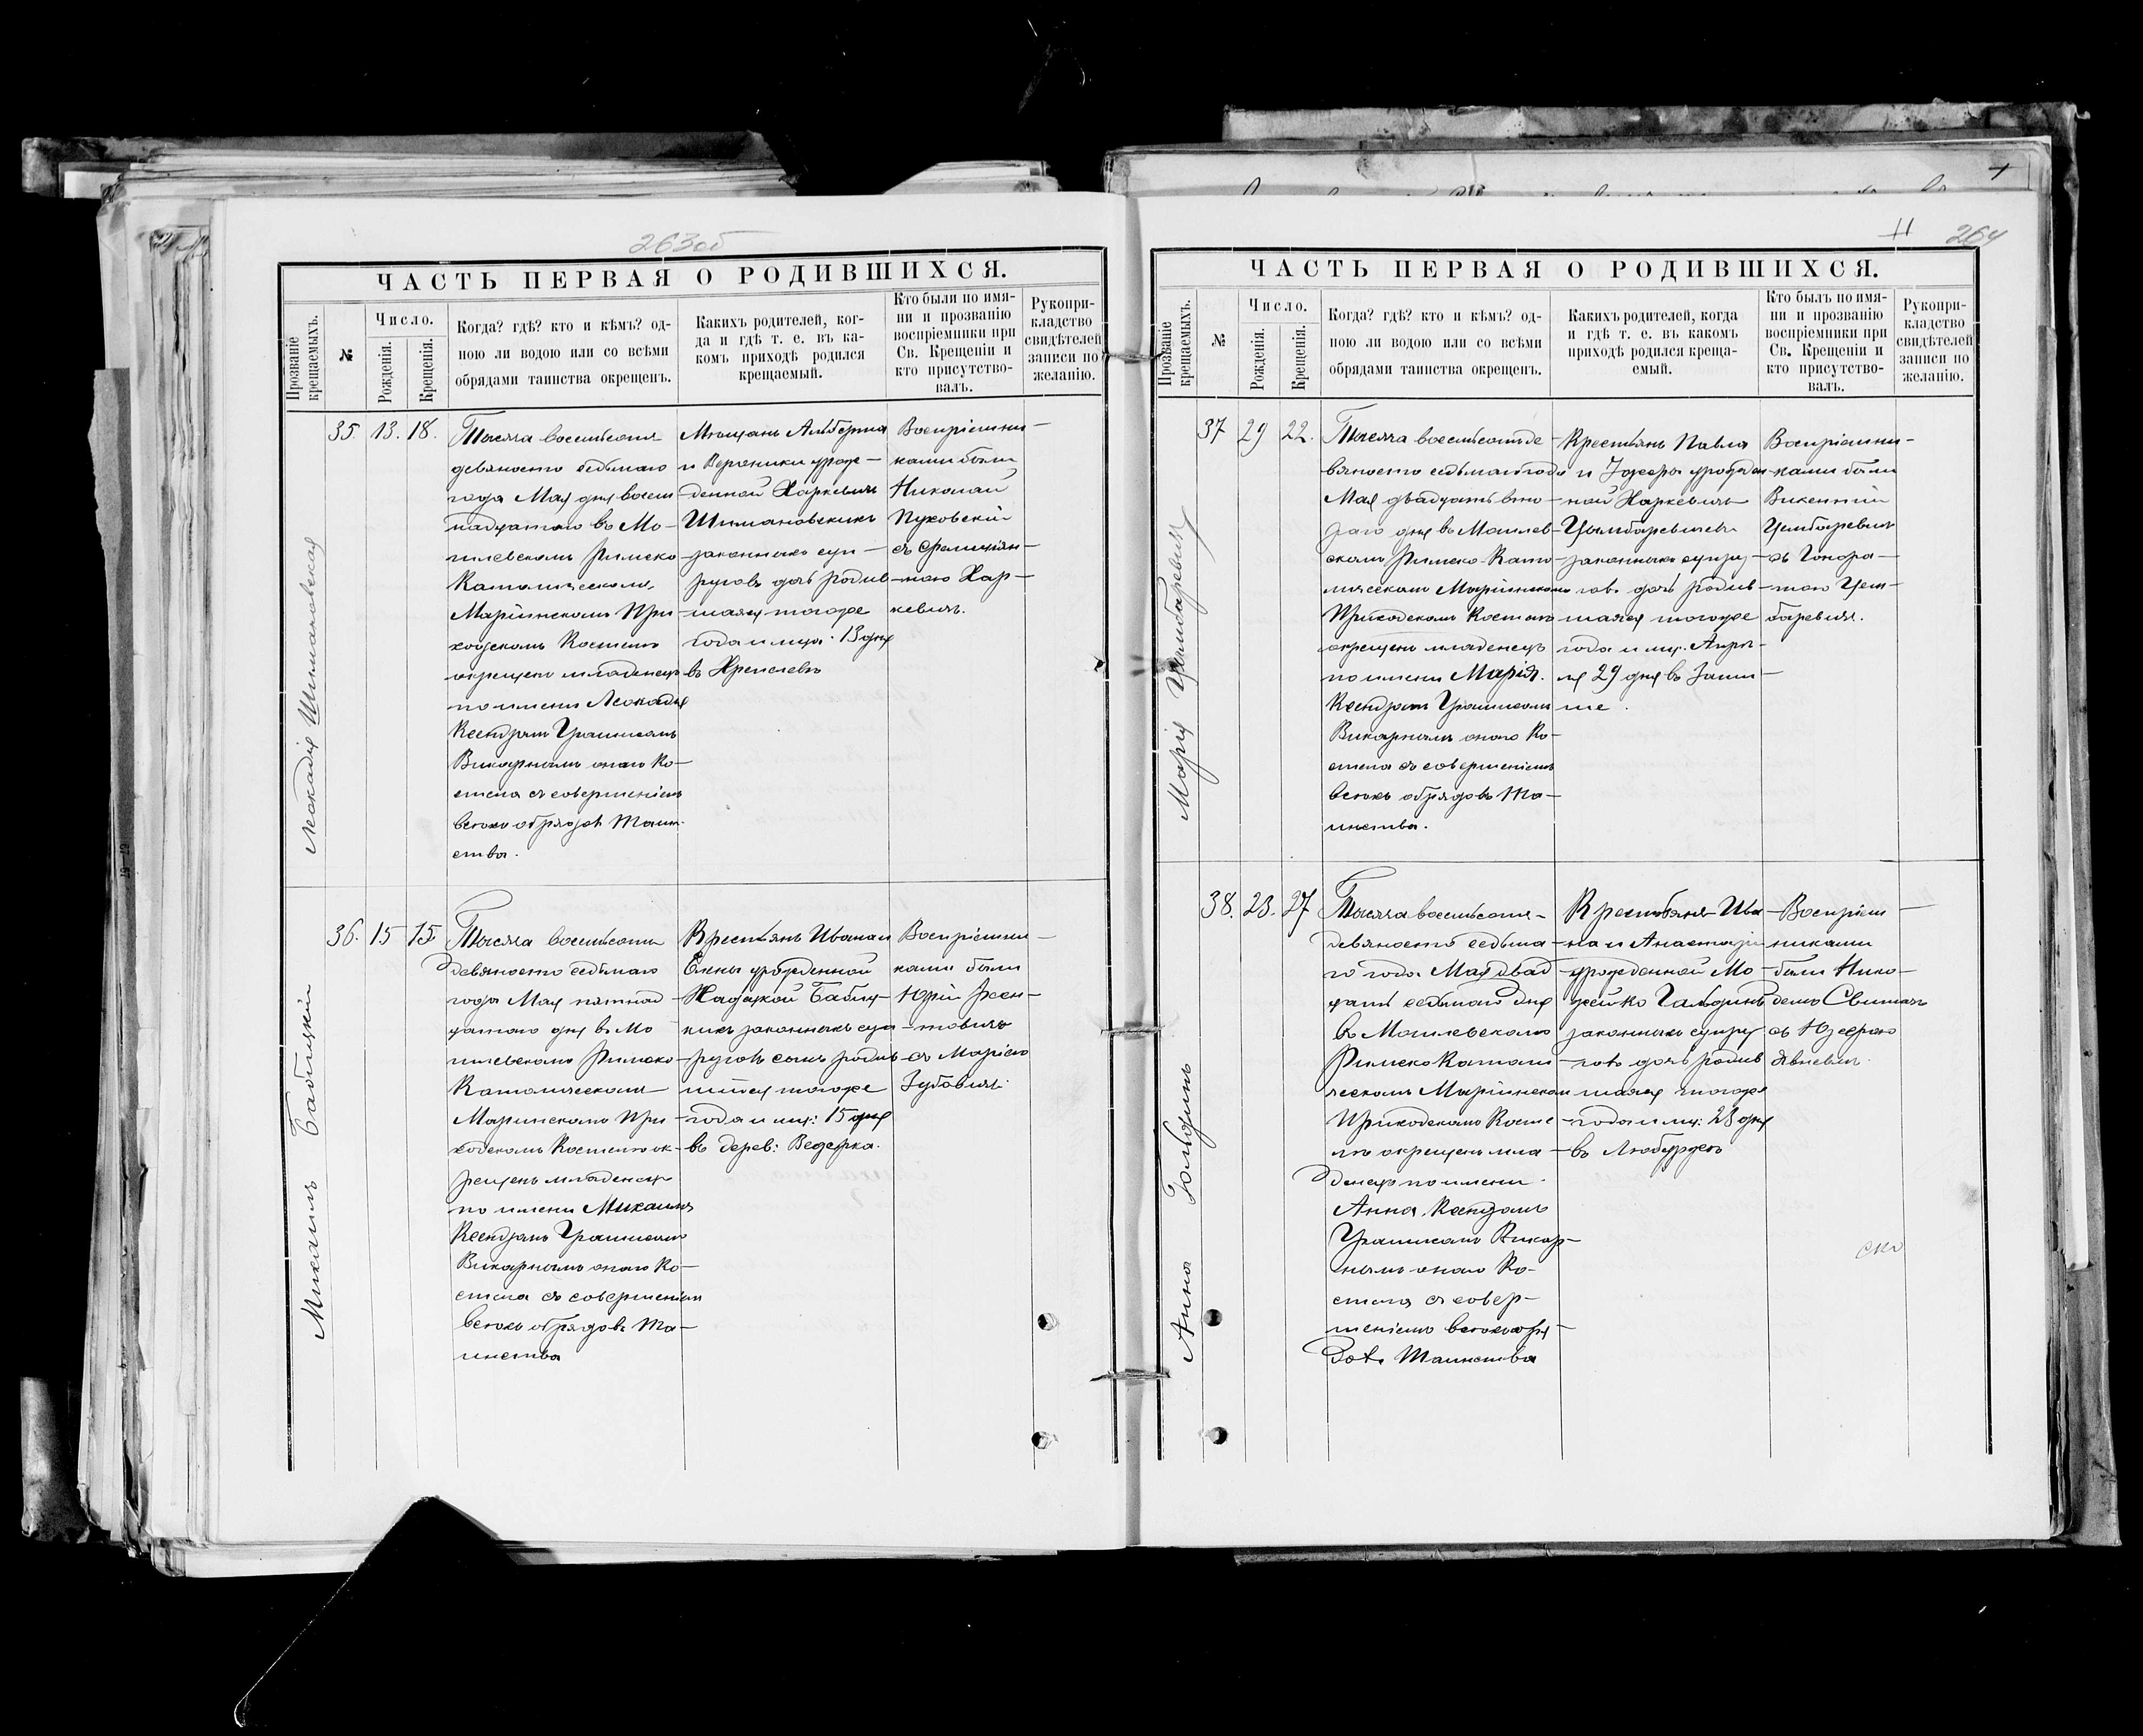 263об
ЧАСТЬ ПЕРВАЯ О РОДИВШИХСЯ.
Прозваніе крещаемыхъ.
№
Число.
Рожденія.
Крещенія.
Когда? гдѣ? кто и кѣмъ? од-
ною ли водою или со всѣми
обрядами таинства окрещенъ.
Какихъ родителей, ког-
да и гдѣ т. е. въ ка-
комъ приходѣ родился
крещаемый.
Кто были по имя-
ни и прозванію
воспріемники при
Св. Крещеніи и
кто присутство-
валъ.
Рукопри-
кладство
свидѣтелей
записи по
желанію.
Леокадія Шимановская
35.
13.
18.
Тысяча восемьсотъ
девяносто седьмаго
года Мая дня восем
надцатаго въ Мо-
гилевскомъ Римско
Католическомъ
Маріинскомъ При
ходскомъ Костелѣ
окрещенъ младенецъ
по имени Леокадія
Ксендзомъ
Викарнымъ онаго Ко-
стела съ совершеніемъ
всѣхъ обрядовъ Таин
ства.
Мѣщанъ Альберта
и Вероники урож-
денной Харкевичъ
Шимановскихъ
законныхъ суп-
руговъ дочь родив
шаяся тогоже
года и мца 13 дня
въ
Воспріемни-
ками были
Николай
Пуковскій
съ
Хар-
кевичъ.
Михаилъ Бабицкій
36.
15
15.
Тысяча восемьсотъ
девяносто седьмаго
года Мая пятнад
цатаго дня въ Мо
гилевскомъ Римско
Католическомъ
Маріинскомъ При
ходскомъ Костелѣ ок-
рещенъ младенецъ
по имени Михаилъ
Ксендзомъ
Викарнымъ онаго Ко-
стела съ совершеніемъ
всѣхъ обрядовъ Та-
инства
Крестьянъ Ивана и
Елены урожденной
Бабиц-
кихъ законныхъ суп-
руговъ сынъ родив
шійся тогоже
года и мца: 15 дня
въ дерев: Ведерка.
Воспріемни-
ками были
Юрій
съ Маріею
Зубовичъ.
264
ЧАСТЬ ПЕРВАЯ О РОДИВШИХСЯ.
Прозваніе крещаемыхъ.
№
Число.
Рожденія.
Крещенія.
Когда? гдѣ? кто и кѣмъ? од-
ною ли водою или со всѣми
обрядами таинства окрещенъ.
Какихъ родителей, когда
и гдѣ т. е. въ какомъ
приходѣ родился креща-
емый.
Кто былъ по имя-
ни и прозванію
воспріемники при
Св. Крещеніи и
кто присутство-
валъ.
Рукопри-
кладство
свидѣтелей
записи по
желанію.
Марія Цымбаревичъ
37
29
22.
Тысяча восемьсотъ де-
вяносто седьмаго года
Мая двадцать вто-
раго дня въ Могилев-
скомъ Римско-Като-
лическомъ Маріинскомъ
Приходскомъ Костелѣ
окрещенъ младенецъ
по имени Марія.
Ксендзомъ
Викарнымъ онаго Ко-
стела съ совершеніемъ
всѣхъ обрядовъ Та-
инства.
Крестьянъ Павла
и Юзефы урожден-
ной Харкевичъ
Цымбаревичевъ
законныхъ супру-
говъ дочь родив-
шаяся тогоже
года и мц. Апрѣ-
ля 29 дня въ
Воспріемни-
ками были
Викентій
Цымбаревичъ
съ Гонора-
тою Цым-
баревичъ.
Анна Гольдинъ
38.
23.
27
Тысяча восемьсотъ
девяносто седьма-
го года Мая двад
цать седьмаго дня
въ Могилевскомъ
Римско Католи
ческомъ Маріинскомъ
Приходскомъ Косте
лѣ окрещенъ мла-
денецъ по имени
Анна, Ксендзомъ
Викар-
нымъ онаго Ко-
стела съ совер-
шеніемъ всѣхъ обря
довъ Таинства
Крестьянъ Ива
на и Анастазіи
урожденной Мо
жейко Гольдинъ
законныхъ супру
говъ дочь родив
шаяся тогоже
года и мц: 23 дня
въ Любужѣ
Воспріем-
никами
были Нико-
демъ
съ Юзефою